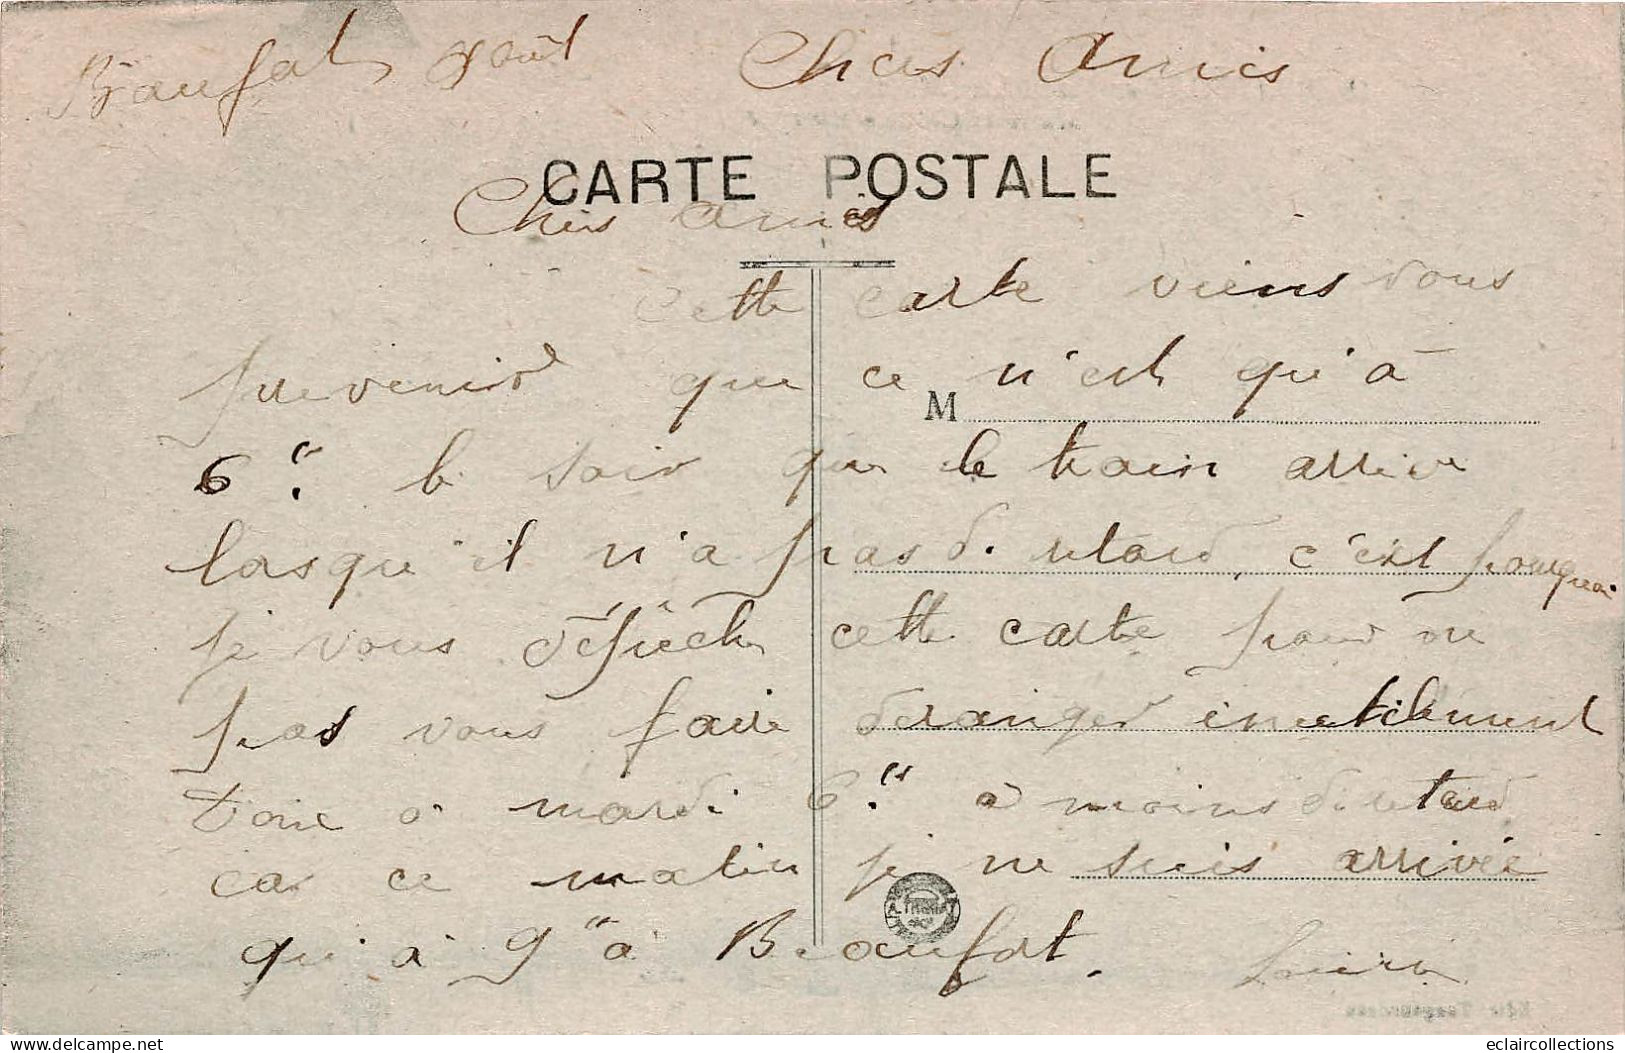 Beaufort Août Chers Amis
CARTE POSTALE
Chers Amis
Cette carte viens vous
prevenir que ce n'est qu'à
M
6 h. le soir que le train arrive
lorsqu'il n'a pas de retard, c'est pourquoi
je vous dépêche cette carte pour ne
pas vous faire deranger inutilement
Donc à mardi 6 h. à moins de retard
car ce matin je ne suis arrivée
qu'à 9 h à Beaufort.
eclaircollections